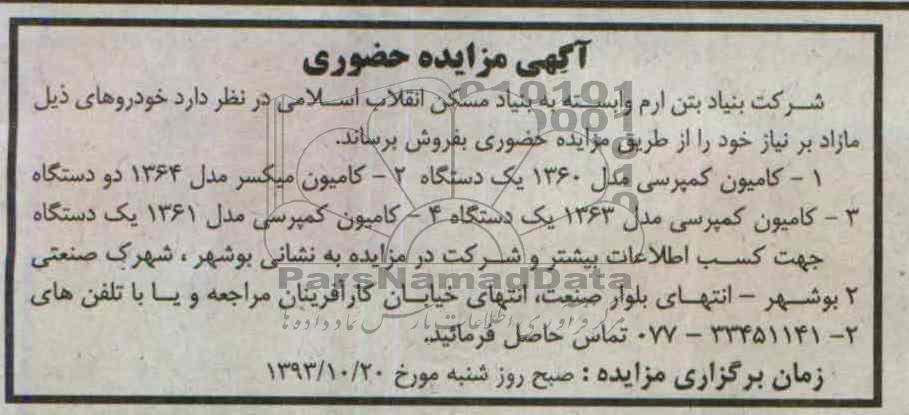 آگهی مزایده حضوری
شرکت بنیاد بتن ارم وابسته به بنیاد مسکن انقلاب اسلامی در نظر دارد خودروهای ذیل
مازاد بر نیاز خود را از طریق مزایده حضوری بفروش برساند.
۱ - کامیون کمپرسی مدل ۱۳۶۰ یک دستگاه ۲ - کامیون میکسر مدل ۱۳۶۴ دو دستگاه
۳ - کامیون کمپرسی مدل ۱۳۶۳ یک دستگاه ۴ - کامیون کمپرسی مدل ۱۳۶۱ یک دستگاه
جهت کسب اطلاعات بیشتر و شرکت در مزایده به نشانی بوشهر ، شهرک صنعتی
ParsNamadData
۲ بوشهر - انتهای بلوار صنعت، انتهای خیابان کارآفرینان مراجعه و یا با تلفن های
۲- ۳۳۴۵۱۱۴۱ - ۰۷۷ تماس حاصل فرمائید.
زمان برگزاری مزایده : صبح روز شنبه مورخ ۱۳۹۳/۱۰/۲۰